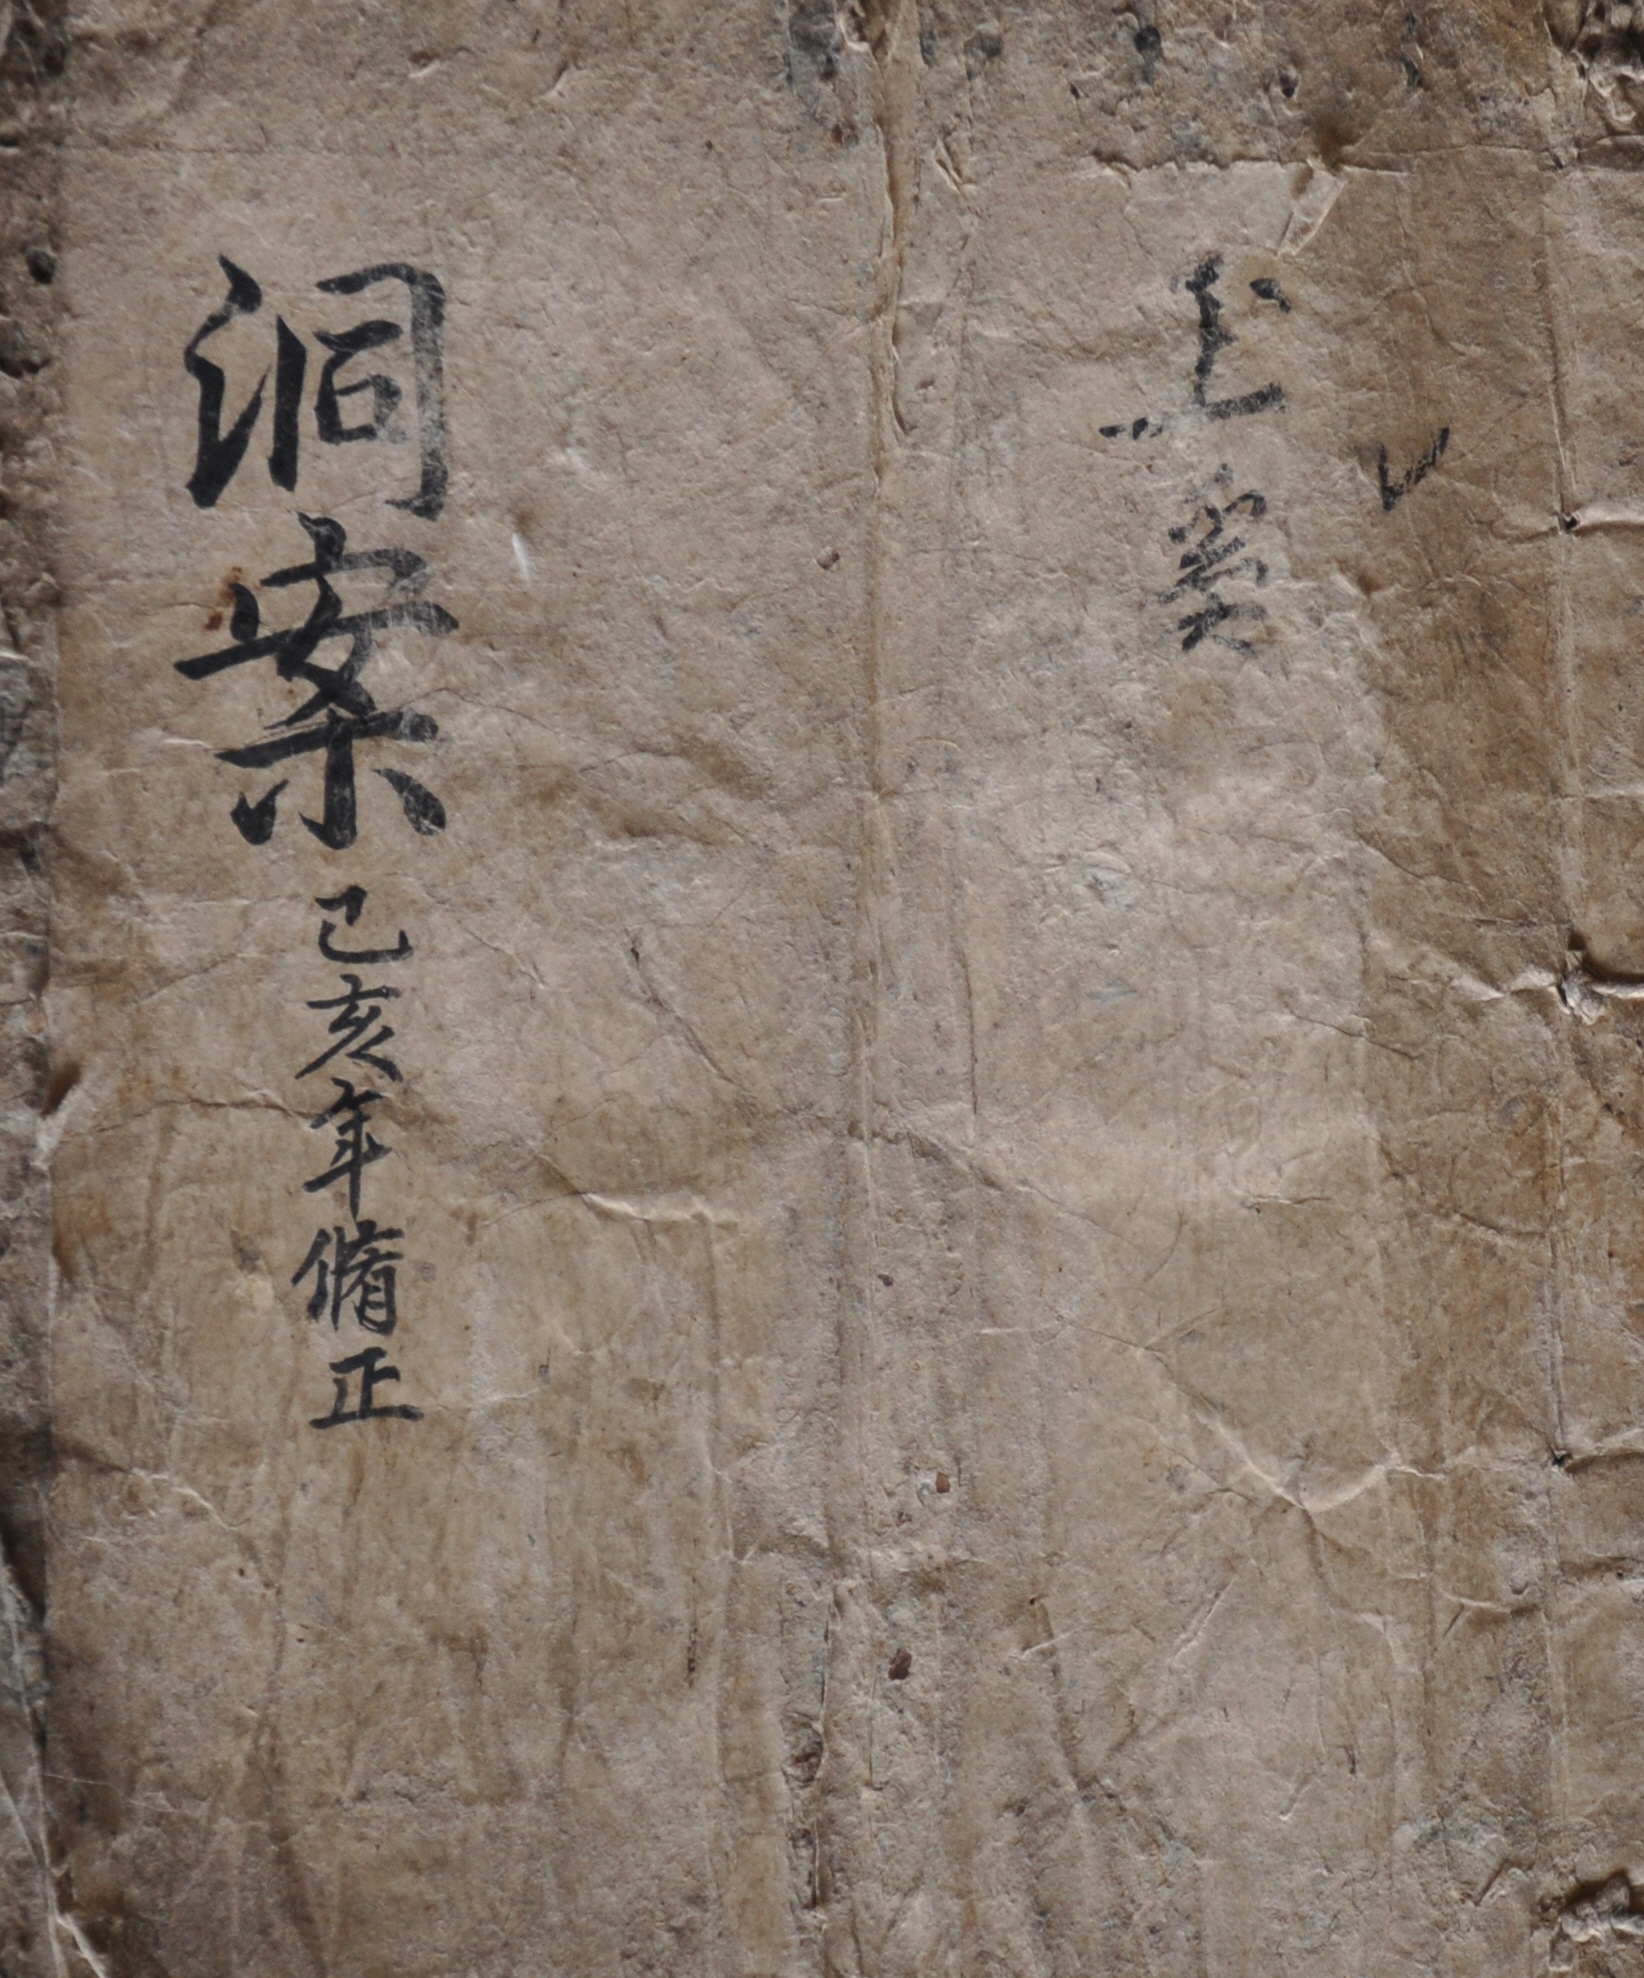 洞案
己亥年脩正